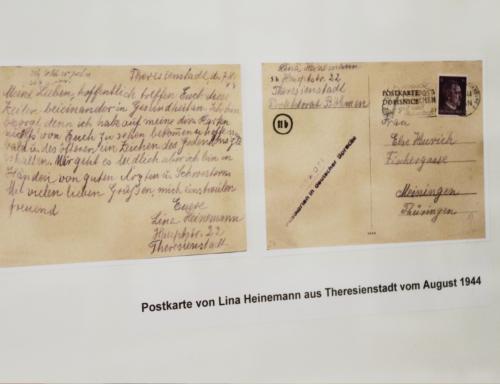 Theresienstadt, d. 7.8.
Meine Lieben, hoffentlich treffen Euch diese
Zeilen beieinander in Gesundheit an. Ich bin
besorgt, denn ich habe auf meine drei Karten
nichts von Euch zu sehen bekommen u. hoffe
bald u. des öfteren ein Zeichen des Gedenkens zu
erhalten. Mir geht es leidlich aber ich bin in
Händen von guten Ärzten u. Schwestern
Mit vielen lieben Grüßen, mich
freuend
Euere
Lina Heinemann
Hauptstr. 22
Theresienstadt
Lina Heinemann
Hauptstr. 22
Theresienstadt
Protektorat Böhmen
POSTKARTE
IIb
Rückantwort nur auf Postkarten
in deutscher Sprache
Frau
Else Hurich
Fischergasse
Meiningen
Thüringen
Postkarte von Lina Heinemann aus Theresienstadt vom August 1944